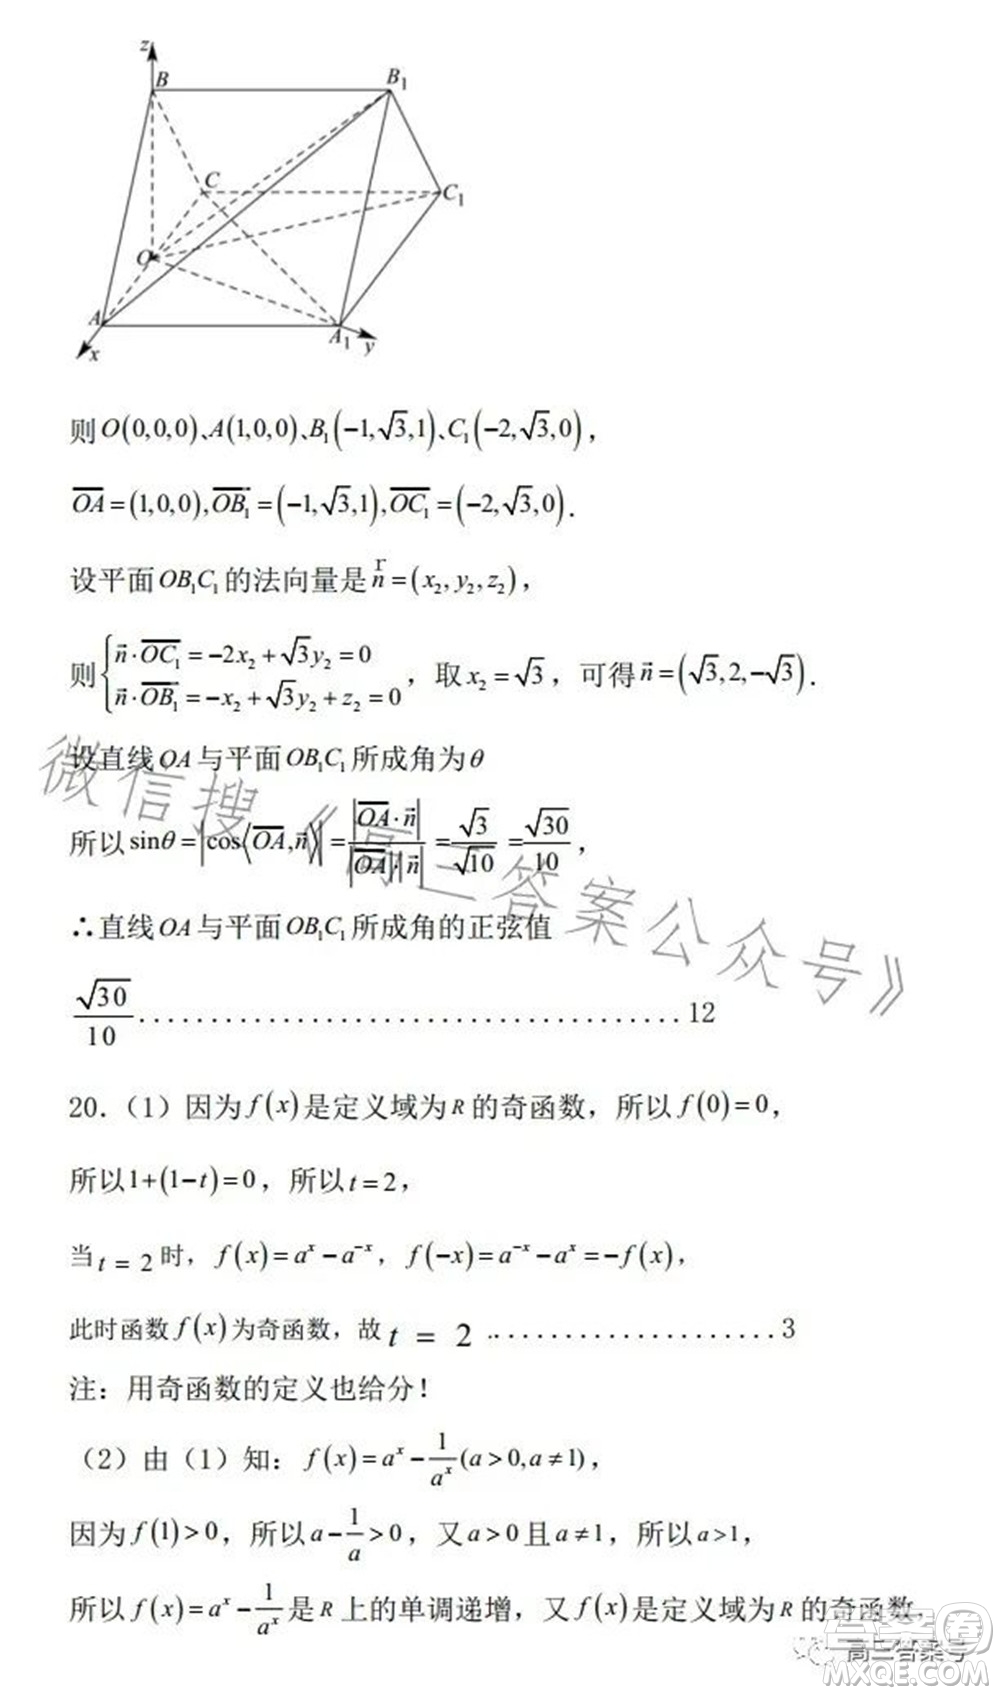 z
B
B₁
C
C₁
O
A
A₁
x
y
则O(0,0,0)、A(1,0,0)、B₁(−1,√3,1)、C₁(−2,√3,0)，
OA=(1,0,0),OB₁=(−1,√3,1),OC₁=(−2,√3,0).
设平面OB₁C₁的法向量是n=(x₂,y₂,z₂)，
则{n·OC₁=−2x₂+√3y₂=0
n·OB₁=−x₂+√3y₂+z₂=0，取x₂=√3，可得n=(√3,2,−√3).
设直线OA与平面OB₁C₁所成角为θ
所以sinθ=|cos⟨OA,n⟩|=|OA·n|/|OA|·|n|=√3/√10=√30/10，
∴直线OA与平面OB₁C₁所成角的正弦值
√30/10......................................12
20.（1）因为f(x)是定义域为R的奇函数，所以f(0)=0，
所以1+(1−t)=0，所以t=2，
当t = 2时，f(x)=aˣ−a⁻ˣ，f(−x)=a⁻ˣ−aˣ=−f(x)，
此时函数f(x)为奇函数，故t = 2.....................3
注：用奇函数的定义也给分！
（2）由（1）知：f(x)=aˣ−1/aˣ(a>0,a≠1)，
因为f(1)>0，所以a−1/a>0，又a>0且a≠1，所以a>1，
所以f(x)=aˣ−1/aˣ是R上的单调递增，又f(x)是定义域为R的奇函数，
微信搜《高三答案公众号》
高三答案号
答案圈
MXQE.COM